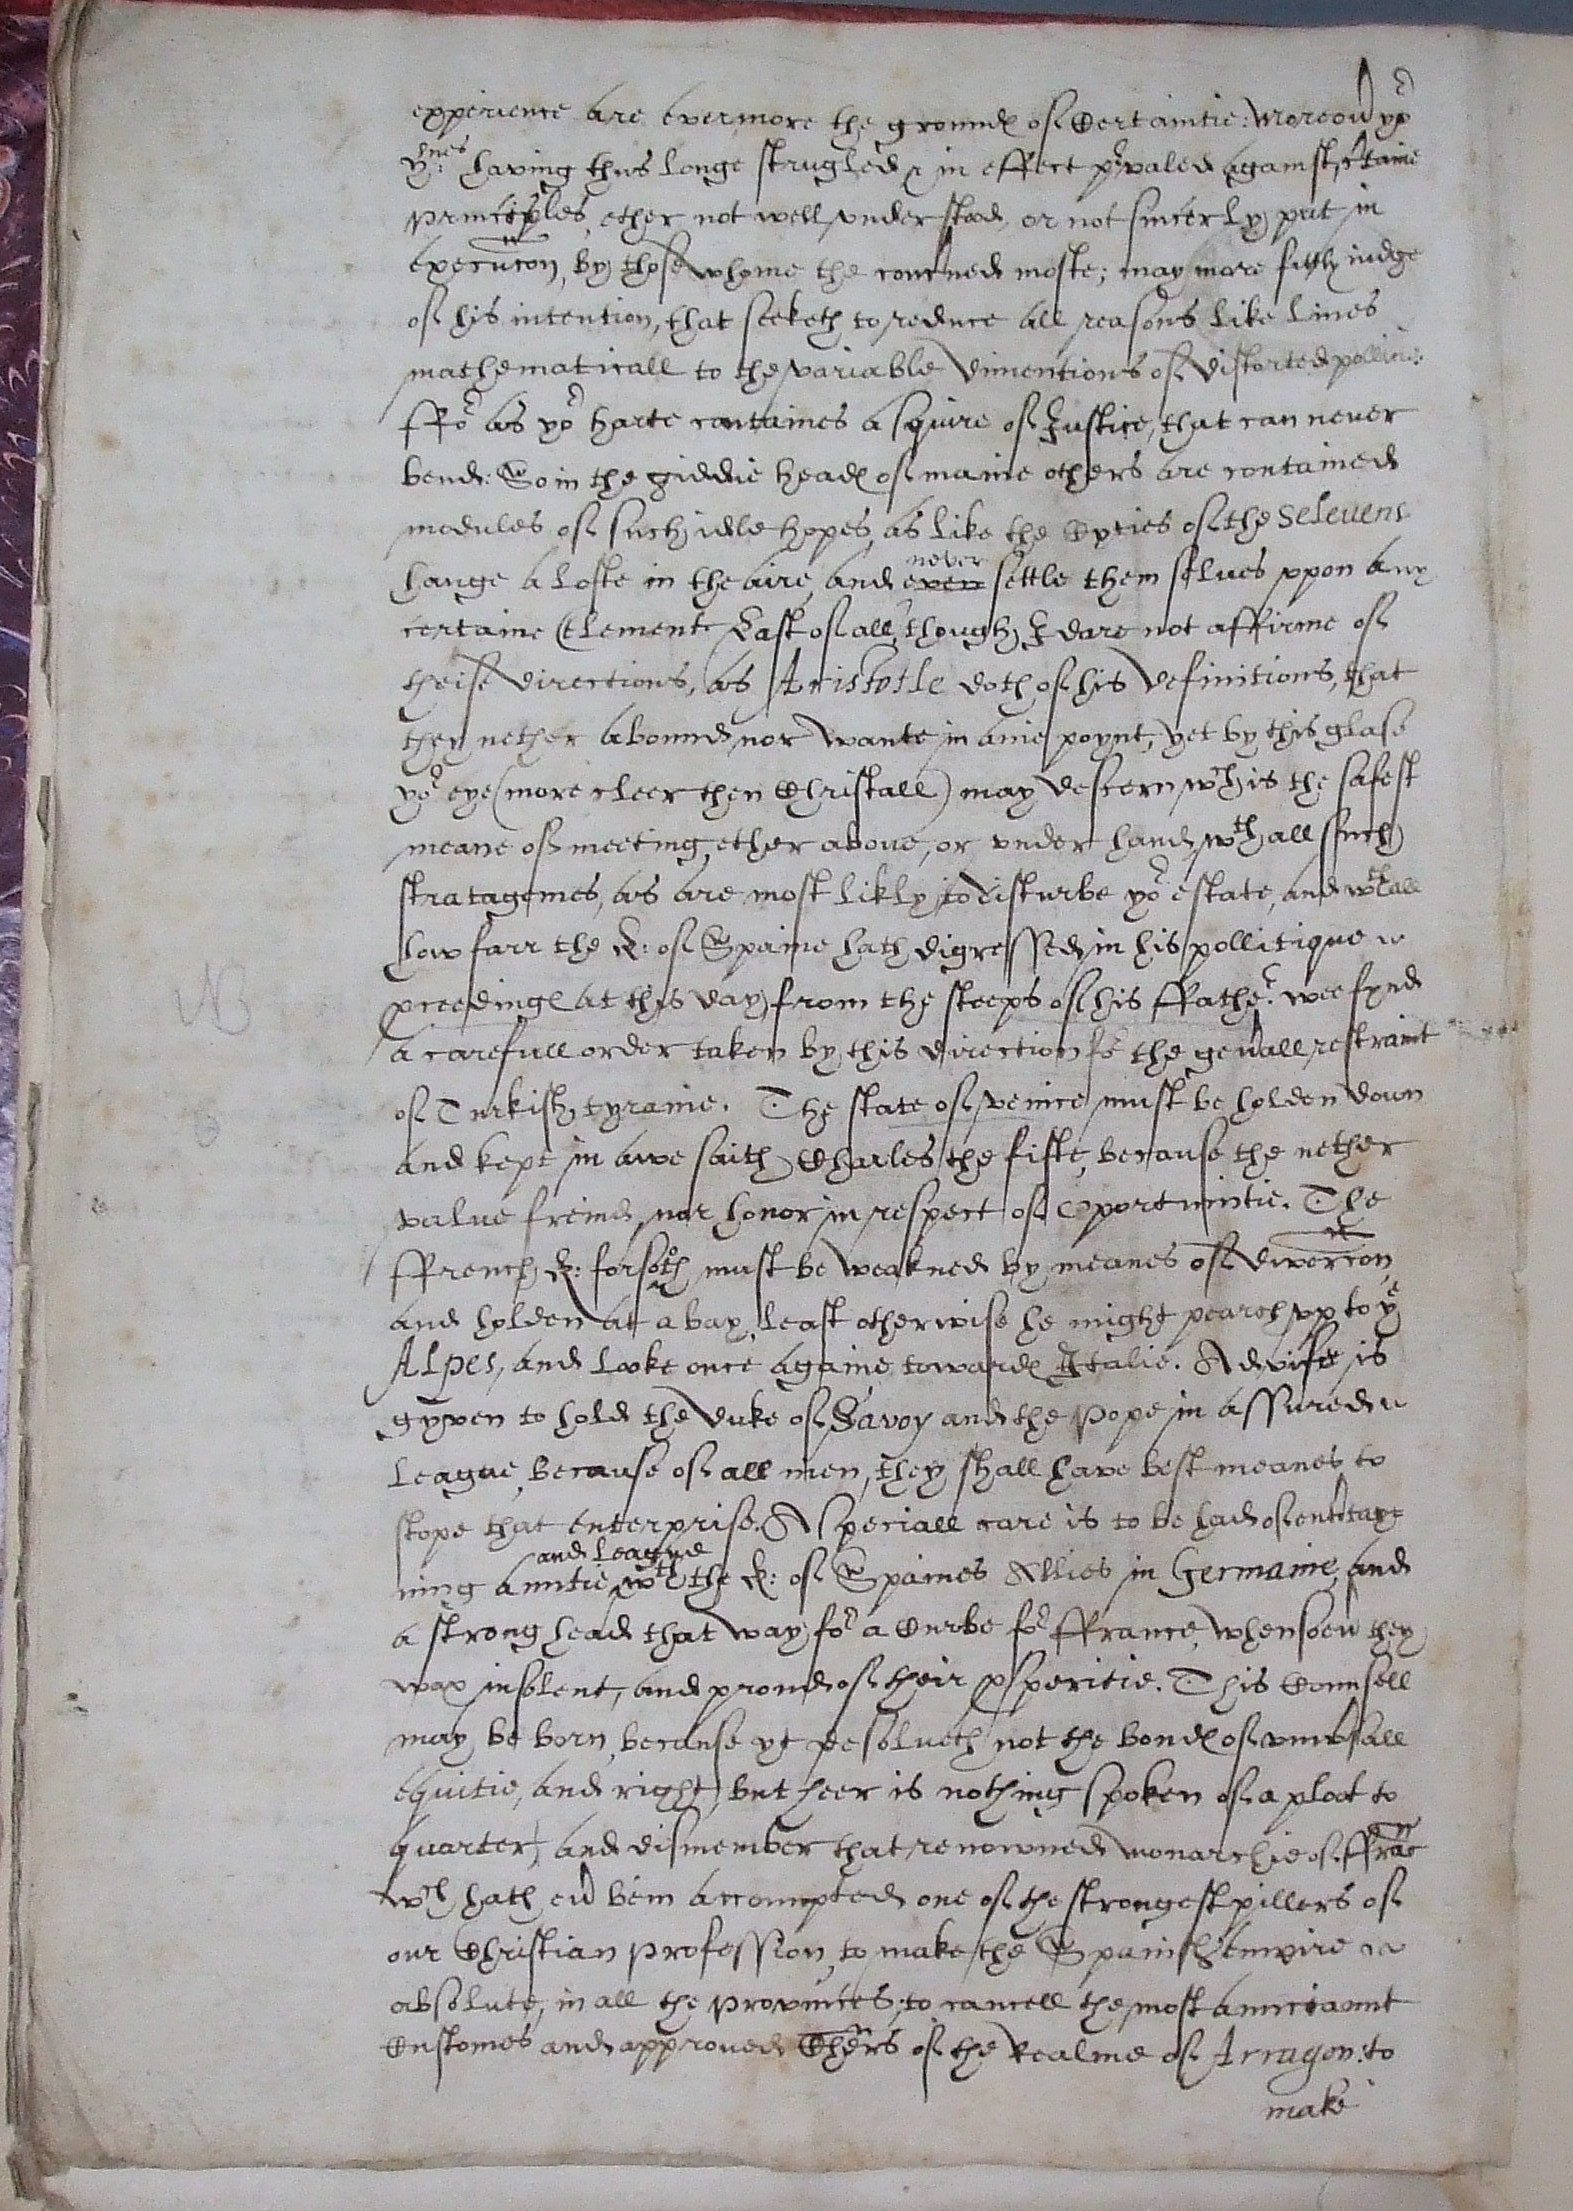 experience are evermore the grounds of Certaintie: Moreouer yor
yties having thus longe strugled & in effect prvaled against certaine
principles, ether not well vnderstood, or not sincerly put in
execucon, by those whome the concrned moste; may more fittly iudge
of his intention, that seeketh to reduce all reasons like lines
mathematicall to the variable dimentions of distorted pollicie:
ffor as yor harte containes a squire of Justice, that can never
bend: So in the giddie heads of manie others are contained
modules of such idle hopes, as like the Cyties of the Seleuens
hange a lofte in the aire, and even never settle them selues vpon any
certaine Element. Last of all, though I dare not affirme of
theise directions, as Aristotle doth of his definitions, that
they nether abound, nor wante in anie poynt, yet by this glase
yor eye (more cleer then Christall) may descern, wch is the safest
meane of meeting, ether aboue, or vnder hand, wth all such
stratagemes, as are most likly to disturbe yor estate, and wthall
how farr the K: of Spaine hath digressed in his pollitique
preedings at this day from the steeps of his ffather. wee fynd
a carefull order taken by this direction for the genall restraint
of Turkish tyranie. The state of venice must be holden down
and kept in awe saith Charles the fifte, because the nether
value freind, nor honor in respect of oportunitie. The
ffrench K: forsoth must be weakned by meanes of divercon,
and holden at a bay, least otherwise he might pearch vp to ye
Alpes, and looke once againe towards Italie. Advise is
gyven to hold the duke of Savoy and the Pope in assured
league, because of all men, they shall have best meanes to
stope that enterprise. A speciall care is to be had of entertay=
ning amitie and league wth the K: of Spaines Allies in Germanie, and
a strong head that way for a Curbe for ffrance, whensoeu they
wax insolent, and proud of their psperitie. This Counsell
may be born, because yt desolueth not the bonds of vniusall
equitie, and right, but heer is nothing spoken of a ploot to
quarter, and dismember that renowned monarchie of ffrance
wch hath eu bein accompted one of the strongest pillers of
our Christian profession, to make the Spanish empire
absolute, in all the provinces; to cancell the most aunciaunt
Customes and approued Chers of the Realme of Arragon: to
make
NB